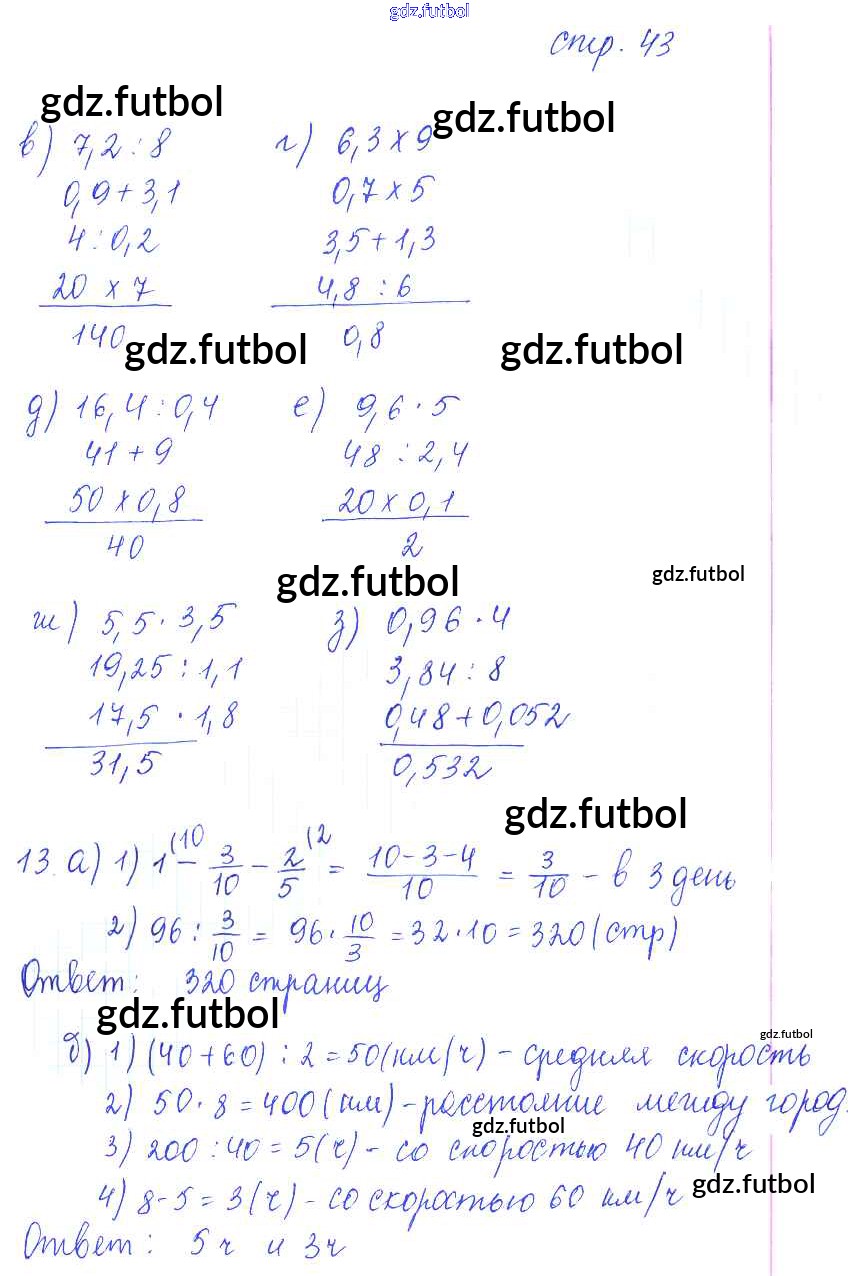 gdz.futbol
стр. 43
gdz.futbol
gdz.futbol
в) 7,2 : 8
0,9 + 3,1
4 : 0,2
20 х 7
140
г) 6,3 х 9
0,7 х 5
3,5 + 1,3
4,8 : 6
0,8
gdz.futbol
gdz.futbol
д) 16,4 : 0,4
41 + 9
50 х 0,8
40
е) 9,6 · 5
48 : 2,4
20 х 0,1
2
gdz.futbol
gdz.futbol
ж) 5,5 · 3,5
19,25 : 1,1
17,5 · 1,8
31,5
з) 0,96 · 4
3,84 : 8
0,48 + 0,052
0,532
gdz.futbol
13. а) 1) 1 (10 − 3/10 − 2/5 (2 = 10-3-4/10 = 3/10 - в 3 день
2) 96 : 3/10 = 96 · 10/3 = 32 · 10 = 320 (стр)
Ответ: 320 страниц
gdz.futbol
gdz.futbol
б) 1) (40 + 60) : 2 = 50 (км/ч) - средняя скорость
2) 50 · 8 = 400 (км) - расстояние между город.
gdz.futbol
3) 200 : 40 = 5 (ч) - со скоростью 40 км/ч
4) 8 - 5 = 3 (ч) - со скоростью 60 км/ч
gdz.futbol
Ответ: 5 ч и 3 ч